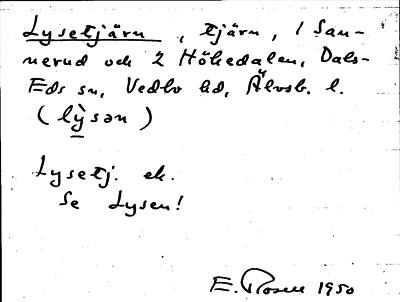 Lysetjärn, tjärn, 1 San-
nerud och 2 Hökedalen, Dals-
Eds sn, Vedbo hd, Älvsb. l.
(lỳsən)
Lysetj. ek.
Se Lysen!
E. Rosell 1950